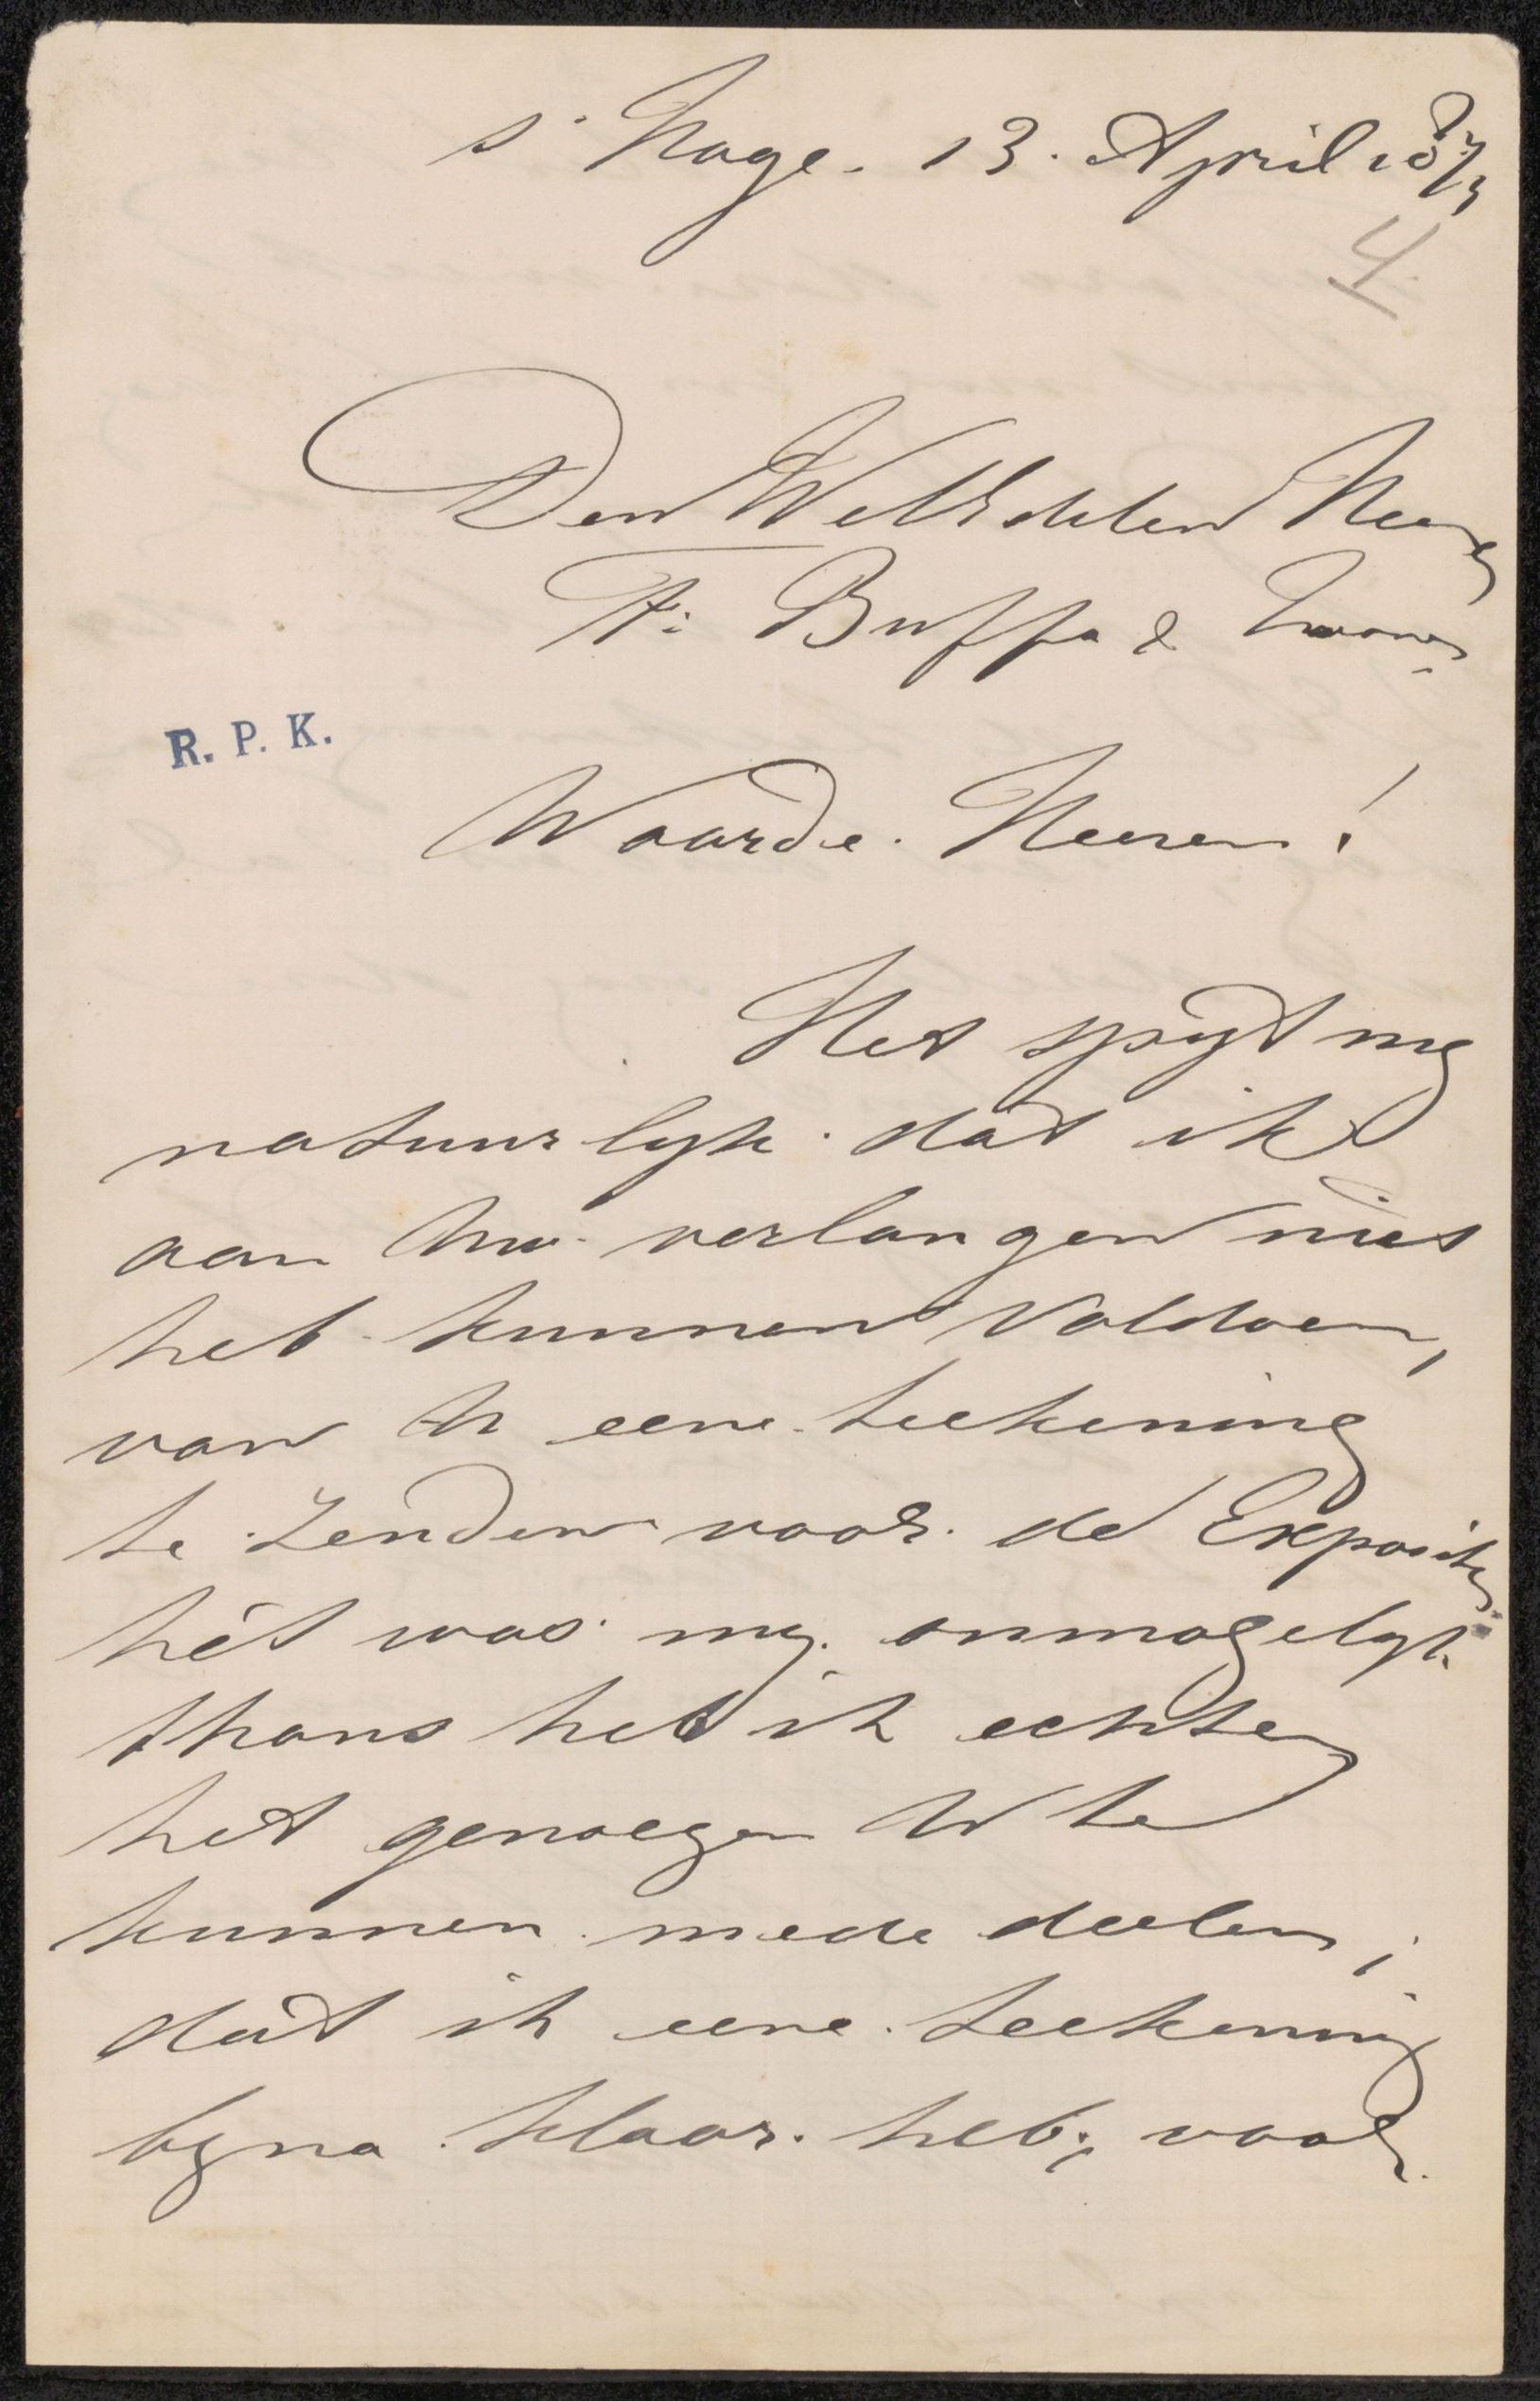 s' Hage. 13. April 18
4
Den WelEdelen Heer
F: Buffa & Zoonen
R. P. K.
Waarde. Heeren!
Het spijt my
natuurlyk. dat ik
aan Uw. verlangen niet
heb kunnen voldoen,
van U eene teekening
te zenden voor. de Expositie
het was my. onmogelyk.
thans heb ik echter
het genoegen U te
kunnen mede deelen,
dat ik eene. teekening
byna klaar. heb, voor.